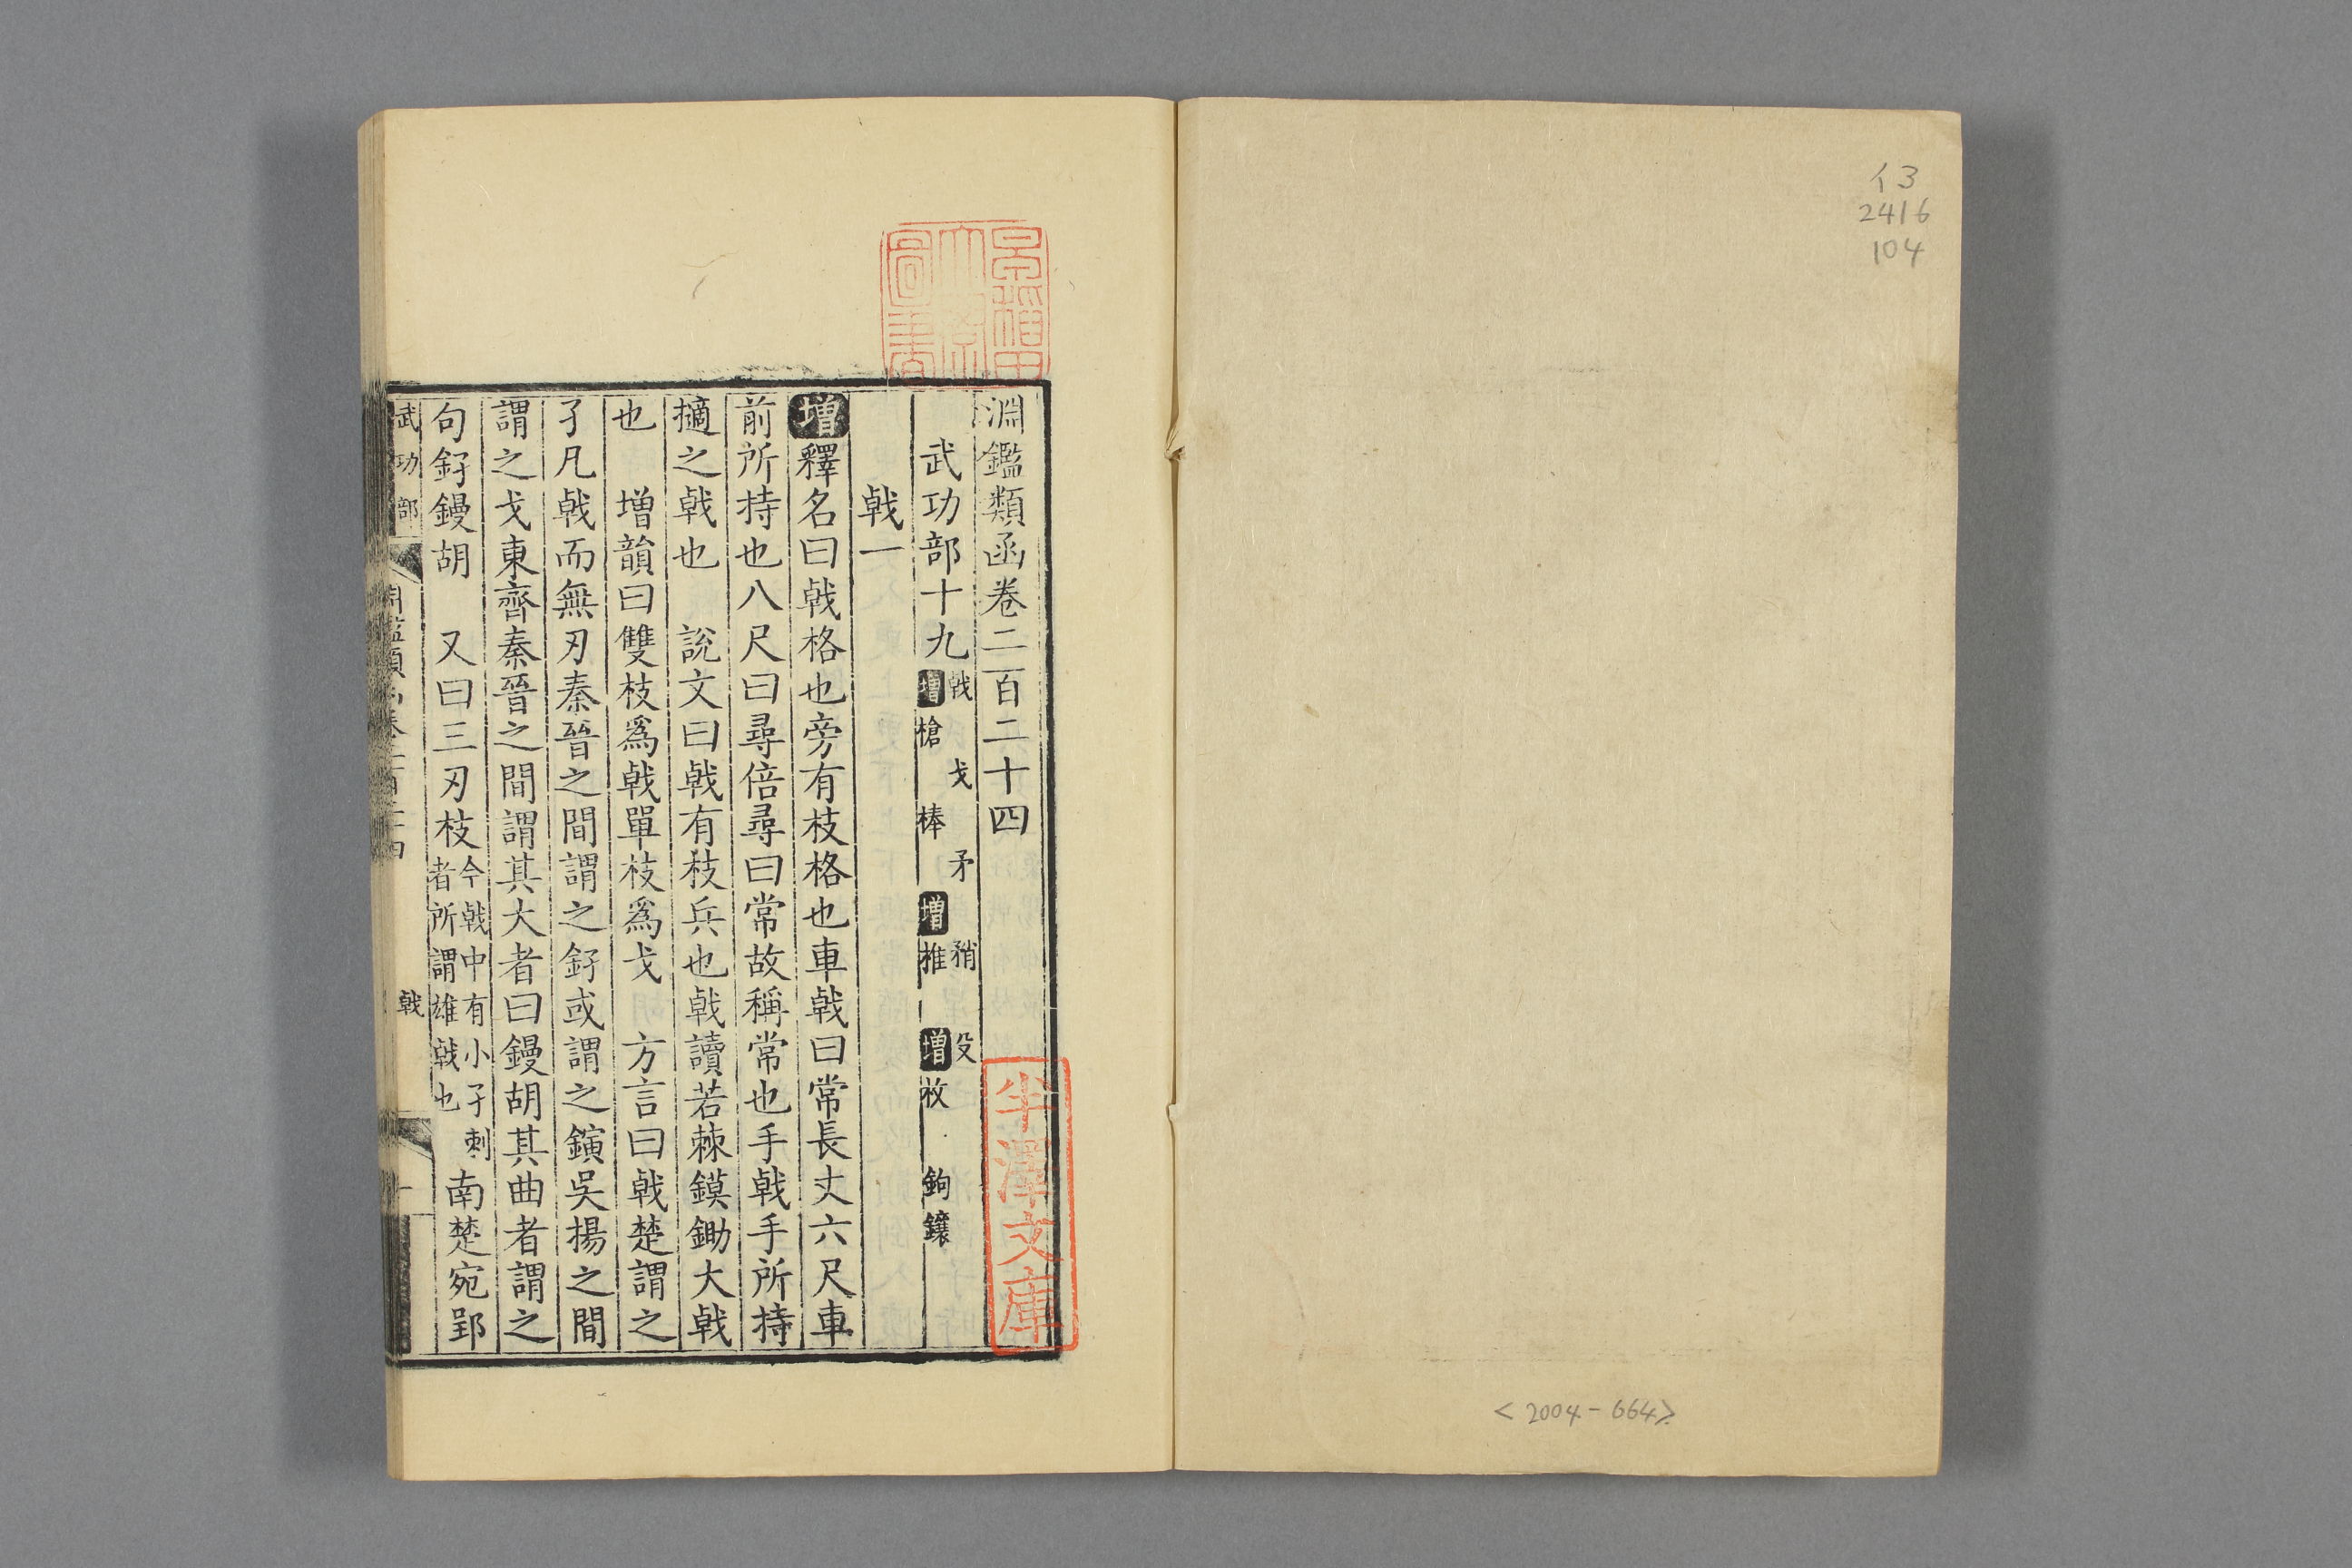 イ3
2416
104
<2004-664>
早稲田
大學
圖書
淵鑑類函卷二百二十四
武功部十九 戟 戈 矛 矟 殳 增槍 棒 增推 增枚 鉤鑲
半澤文庫
戟一
增釋名曰戟格也旁有枝格也車戟曰常長丈六尺車
前所持也八尺曰尋倍尋曰常故稱常也手戟手所持
擿之戟也 說文曰戟有枝兵也戟讀若棘鏌鋤大戟
也 增韻曰雙枝爲戟單枝爲戈 方言曰戟楚謂之
孑凡戟而無刃秦晉之間謂之釨或謂之鏔吳揚之間
謂之戈東齊秦晉之間謂其大者曰鏝胡其曲者謂之
句釨鏝胡 又曰三刃枝今戟中有小孑刺者所謂雄戟也南楚宛郢
武功部 淵鑑類函卷二百二十四 戟 一